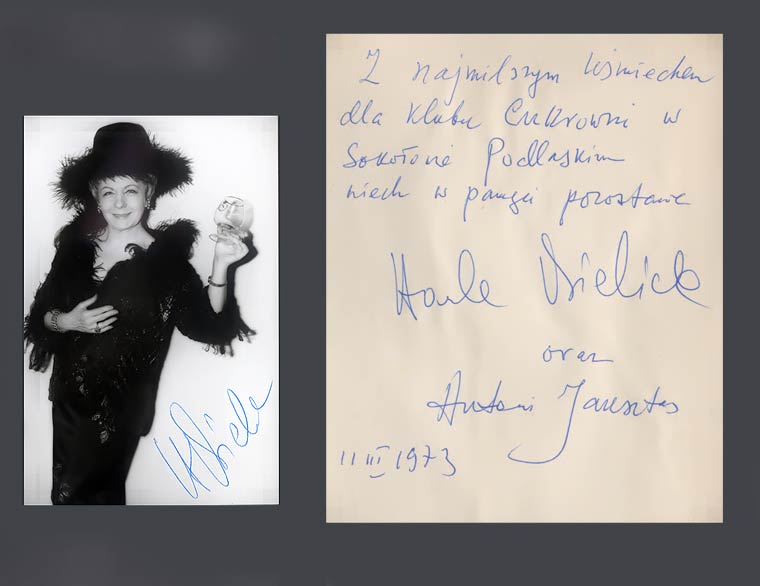 Z najmilszym uśmiechem
dla Klubu Cukrowni w
Sokołowie Podlaskim
niech w pamięci pozostanie
Hanka Bielicka
oraz
Antoni Jaksztas
11 III 1973